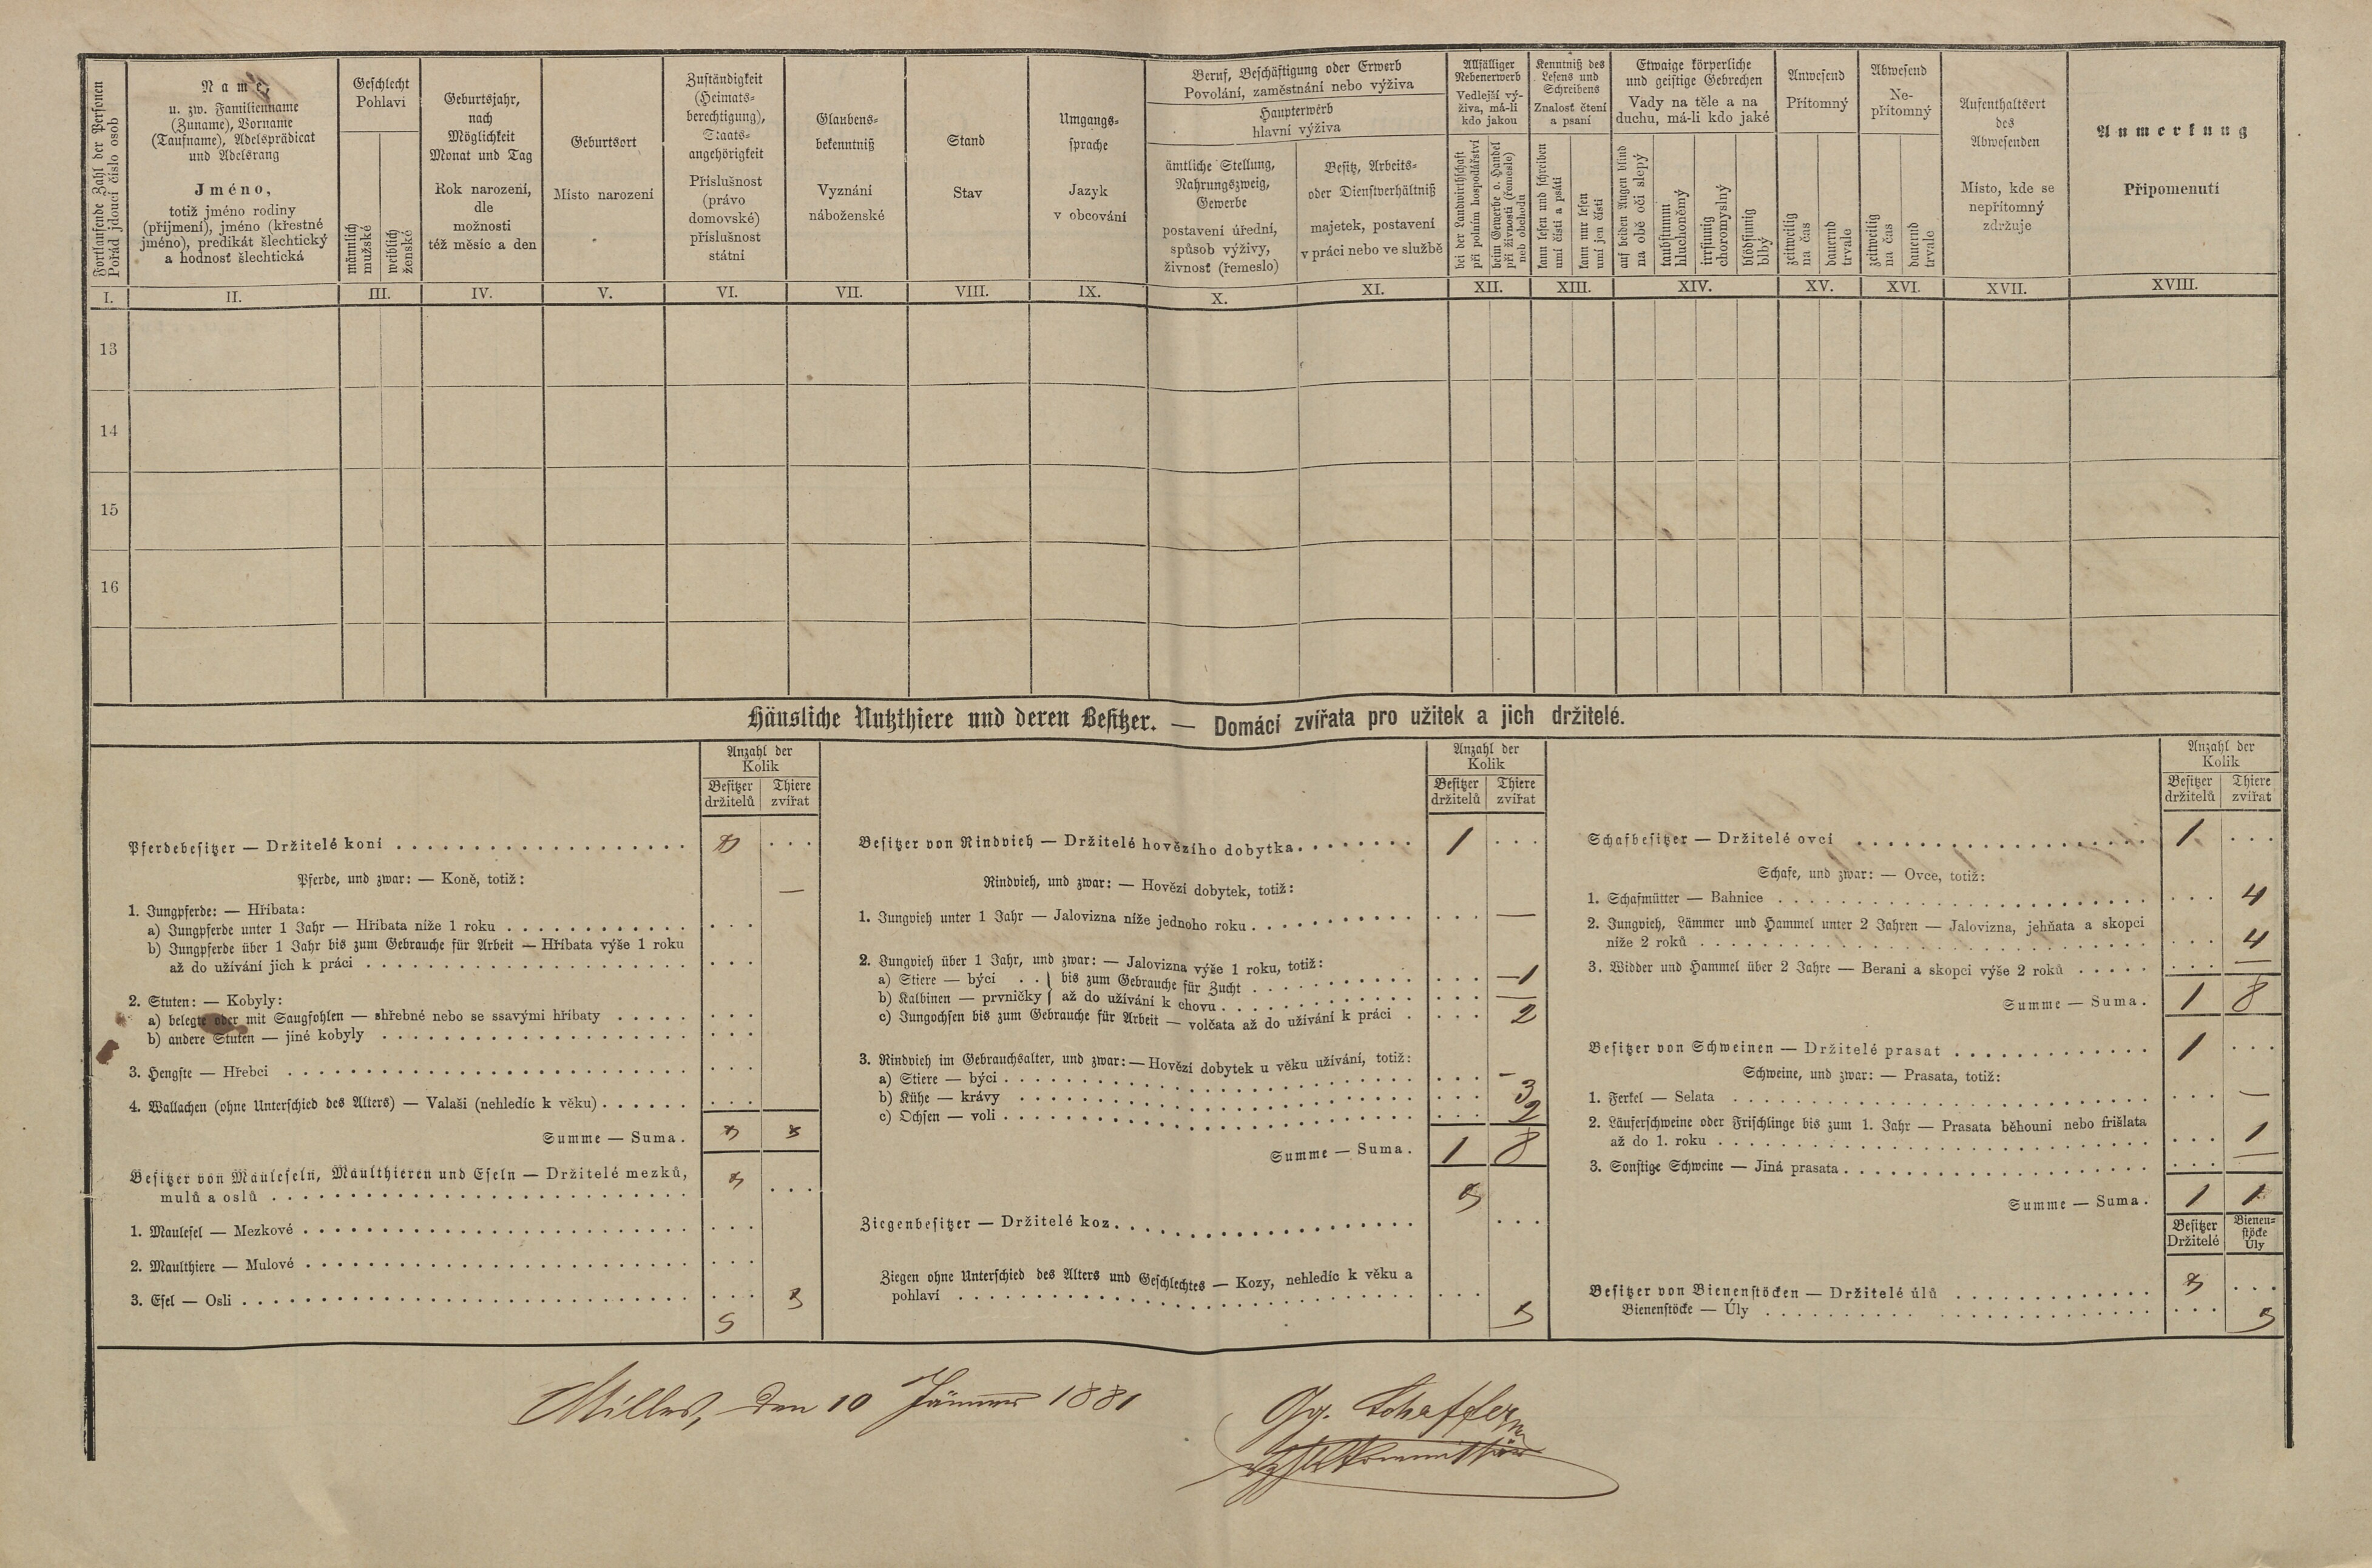 Fortlaufende Zahl der Personen
Pořád jdoucí číslo osob
Name,
u. zw. Familienname
(Zuname), Vorname
(Taufname), Adelsprädicat
und Adelsrang
Jméno,
totiž jméno rodiny
(příjmení), jméno (křestné
jméno), predikát šlechtický
a hodnosť šlechtická
Geschlecht
Pohlaví
männlich
mužské
weiblich
ženské
Geburtsjahr,
nach
Möglichkeit
Monat und Tag
Rok narození,
dle
možnosti
též měsíc a den
Geburtsort
Místo narození
Zuständigkeit
(Heimats=
berechtigung),
Staats=
angehörigkeit
Příslušnost
(právo
domovské)
příslušnost
státní
Glaubens=
bekenntniß
Vyznání
náboženské
Stand
Stav
Umgangs=
sprache
Jazyk
v obcování
Beruf, Beschäftigung oder Erwerb
Povolání, zaměstnání nebo výživa
Haupterwerb
hlavní výživa
ämtliche Stellung,
Nahrungszweig,
Gewerbe
postavení úřední,
spůsob výživy,
živnosť (řemeslo)
Besitz, Arbeits=
oder Dienstverhältniß
majetek, postavení
v práci nebo ve službě
Allfälliger
Nebenerwerb
Vedlejší vý-
živa, má-li
kdo jakou
bei der Landwirthschaft
při polním hospodářství
beim Gewerbe o. Handel
při živnosti (řemesle)
neb obchodu
Kenntniß des
Lesens und
Schreibens
Znalosť čtení
a psaní
kann lesen und schreiben
umí čísti a psáti
kann nur lesen
umí jen čísti
Etwaige körperliche
und geistige Gebrechen
Vady na těle a na
duchu, má-li kdo jaké
auf beiden Augen blind
na obě oči slepý
taubstumm
hluchoněmý
irrsinnig
choromyslný
blödsinnig
blbý
Anwesend
Přítomný
zeitweilig
na čas
dauernd
trvale
Abwesend
Ne-
přítomný
zeitweilig
na čas
dauernd
trvale
Aufenthaltsort
des
Abwesenden
Místo, kde se
nepřítomný
zdržuje
Anmerkung
Připomenutí
I. II. III. IV. V. VI. VII. VIII. IX. X. XI. XII. XIII. XIV. XV. XVI. XVII. XVIII.
13
14
15
16
Häusliche Nutzthiere und deren Besitzer. — Domácí zvířata pro užitek a jich držitelé.
Anzahl der
Kolik
Besitzer Thiere
držitelů zvířat
Pferdebesitzer — Držitelé koní
Pferde, und zwar: — Koně, totiž: —
1. Jungpferde: — Hříbata:
a) Jungpferde unter 1 Jahr — Hříbata níže 1 roku
b) Jungpferde über 1 Jahr bis zum Gebrauche für Arbeit — Hříbata výše 1 roku
až do užívání jich k práci
2. Stuten: — Kobyly:
a) belegte oder mit Saugfohlen — shřebné nebo se ssavými hříbaty
b) andere Stuten — jiné kobyly
3. Hengste — Hřebci
4. Wallachen (ohne Unterschied des Alters) — Valaši (nehledíc k věku)
Summe — Suma.
Besitzer von Mauleseln, Maulthieren und Eseln — Držitelé mezků,
mulů a oslů
1. Maulesel — Mezkové
2. Maulthiere — Mulové
3. Esel — Osli
Anzahl der
Kolik
Besitzer Thiere
držitelů zvířat
Besitzer von Rindvieh — Držitelé hovězího dobytka 1
Rindvieh, und zwar: — Hovězí dobytek, totiž:
1. Jungvieh unter 1 Jahr — Jalovizna níže jednoho roku —
2. Jungvieh über 1 Jahr, und zwar: — Jalovizna výše 1 roku, totiž:
a) Stiere — býci . . } bis zum Gebrauche für Zucht —1
b) Kalbinen — prvničky } až do užívání k chovu —
c) Jungochsen bis zum Gebrauche für Arbeit — volčata až do užívání k práci 2
3. Rindvieh im Gebrauchsalter, und zwar: — Hovězí dobytek u věku užívání, totiž:
a) Stiere — býci —
b) Kühe — krávy 3
c) Ochsen — voli 2
Summe — Suma. 1 8
Ziegenbesitzer — Držitelé koz
Ziegen ohne Unterschied des Alters und Geschlechtes — Kozy, nehledíc k věku a
pohlaví
Anzahl der
Kolik
Besitzer Thiere
držitelů zvířat
Schafbesitzer — Držitelé ovcí 1
Schafe, und zwar: — Ovce, totiž:
1. Schafmütter — Bahnice 4
2. Jungvieh, Lämmer und Hammel unter 2 Jahren — Jalovizna, jehňata a skopci
níže 2 roků 4
3. Widder und Hammel über 2 Jahre — Berani a skopci výše 2 roků —
Summe — Suma. 1 8
Besitzer von Schweinen — Držitelé prasat 1
Schweine, und zwar: — Prasata, totiž:
1. Ferkel — Selata —
2. Läuferschweine oder Frischlinge bis zum 1. Jahr — Prasata běhouni nebo frišlata
až do 1. roku 1
3. Sonstige Schweine — Jiná prasata —
Summe — Suma. 1 1
Besitzer Bienen=
Držitelé stöcke
Úly
Besitzer von Bienenstöcken — Držitelé úlů
Bienenstöcke — Úly
Milles, den 10 Jänner 1881
Gg. Schaffer
Zählkommissär